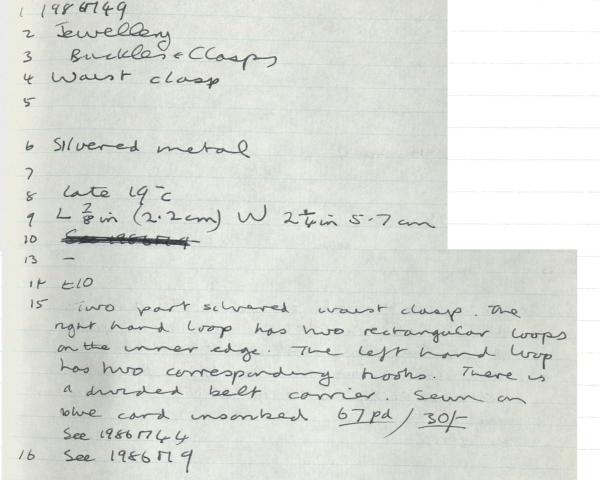 1 1986 M49
2 Jewellery
3 Buckles & Clasps
4 Waist clasp
5
6 Silvered metal
7
8 Late 19th c
9 L 7/8 in (2.2cm) W 2 1/4 in 5.7 cm
10
13 -
14 £10
15 Two part silvered waist clasp. The
right hand loop has two rectangular loops
on the inner edge. The left hand loop
has two corresponding hooks. There is
a divided belt carrier. Sewn on
blue card inscribed 67pd / 30/-
See 1986 M44
16 See 1986 M9